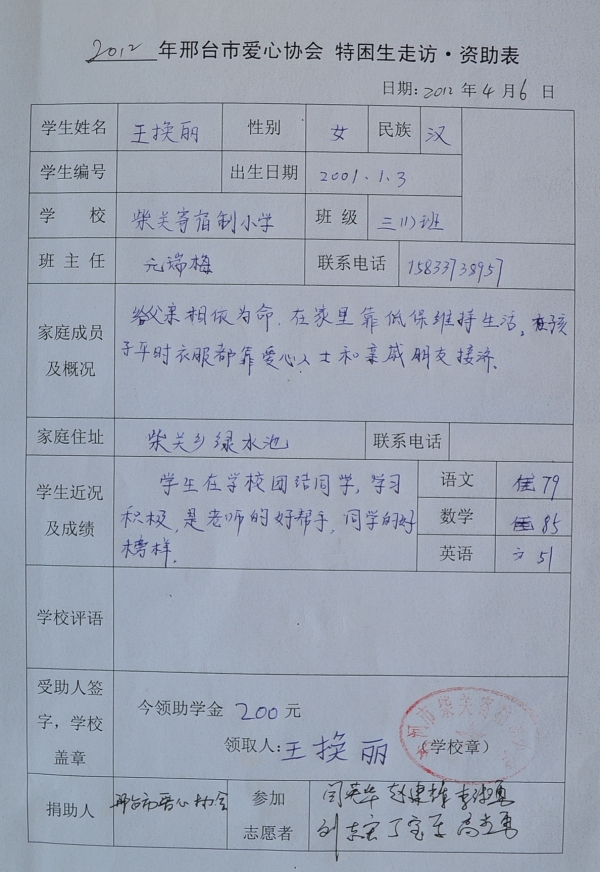 2012 年邢台市爱心协会 特困生走访·资助表
日期: 2012 年 4 月 6 日
学生姓名 王换丽 性别 女 民族 汉
学生编号 出生日期 2001.1.3
学 校 柴关寄宿制小学 班 级 三(1)班
班 主 任 元瑞梅 联系电话 15833738957
家庭成员
及概况
父亲相依为命,在家里靠低保维持生活,孩
子平时衣服都靠爱心人士和亲戚朋友接济.
家庭住址 柴关乡绿水池 联系电话
学生近况
及成绩
学生在学校团结同学,学习
积极,是老师的好帮手,同学的好
榜样.
语文 79
数学 85
英语 51
学校评语
受助人签
字,学校
盖章
今领助学金 200 元
领取人: 王换丽 (学校章)
市柴关寄宿
捐助人 邢台市爱心协会 参加
志愿者
闫英华 赵建雄
刘志宏 丁宝军 高志勇